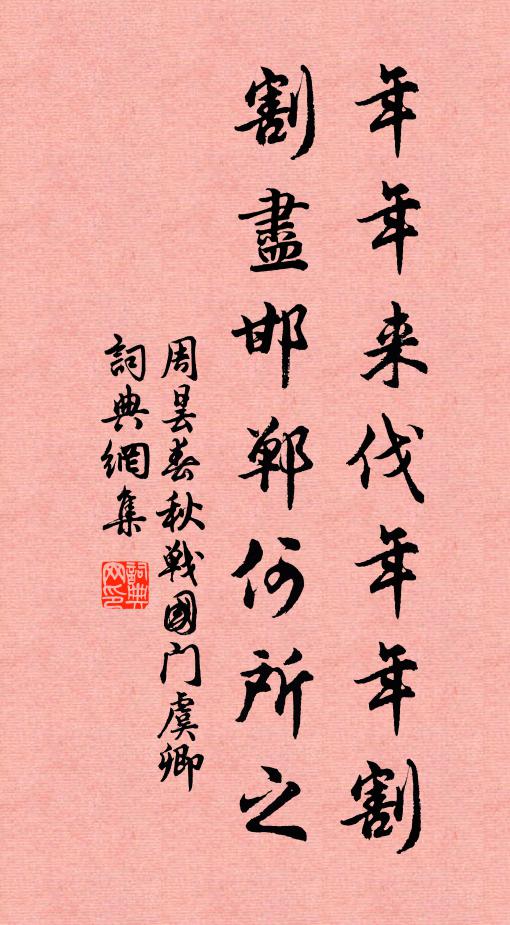 年年来伐年年割
割盡邯鄲何所之
周昙春秋戦國门虞卿
詞典網集
詞典網印